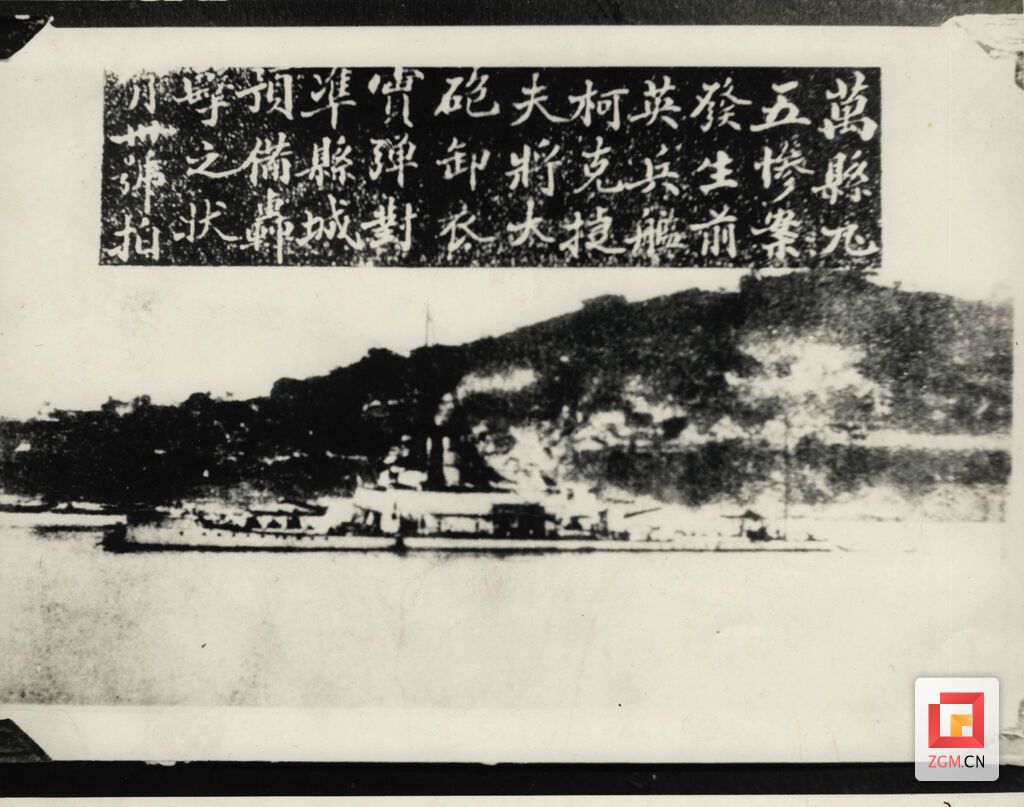 萬縣九
五慘案
發生前
英兵艦
柯克捷
夫將大
砲卸衣
實弹對
準縣城
預備轟
擊之状
月卅號拍
ZGM.CN